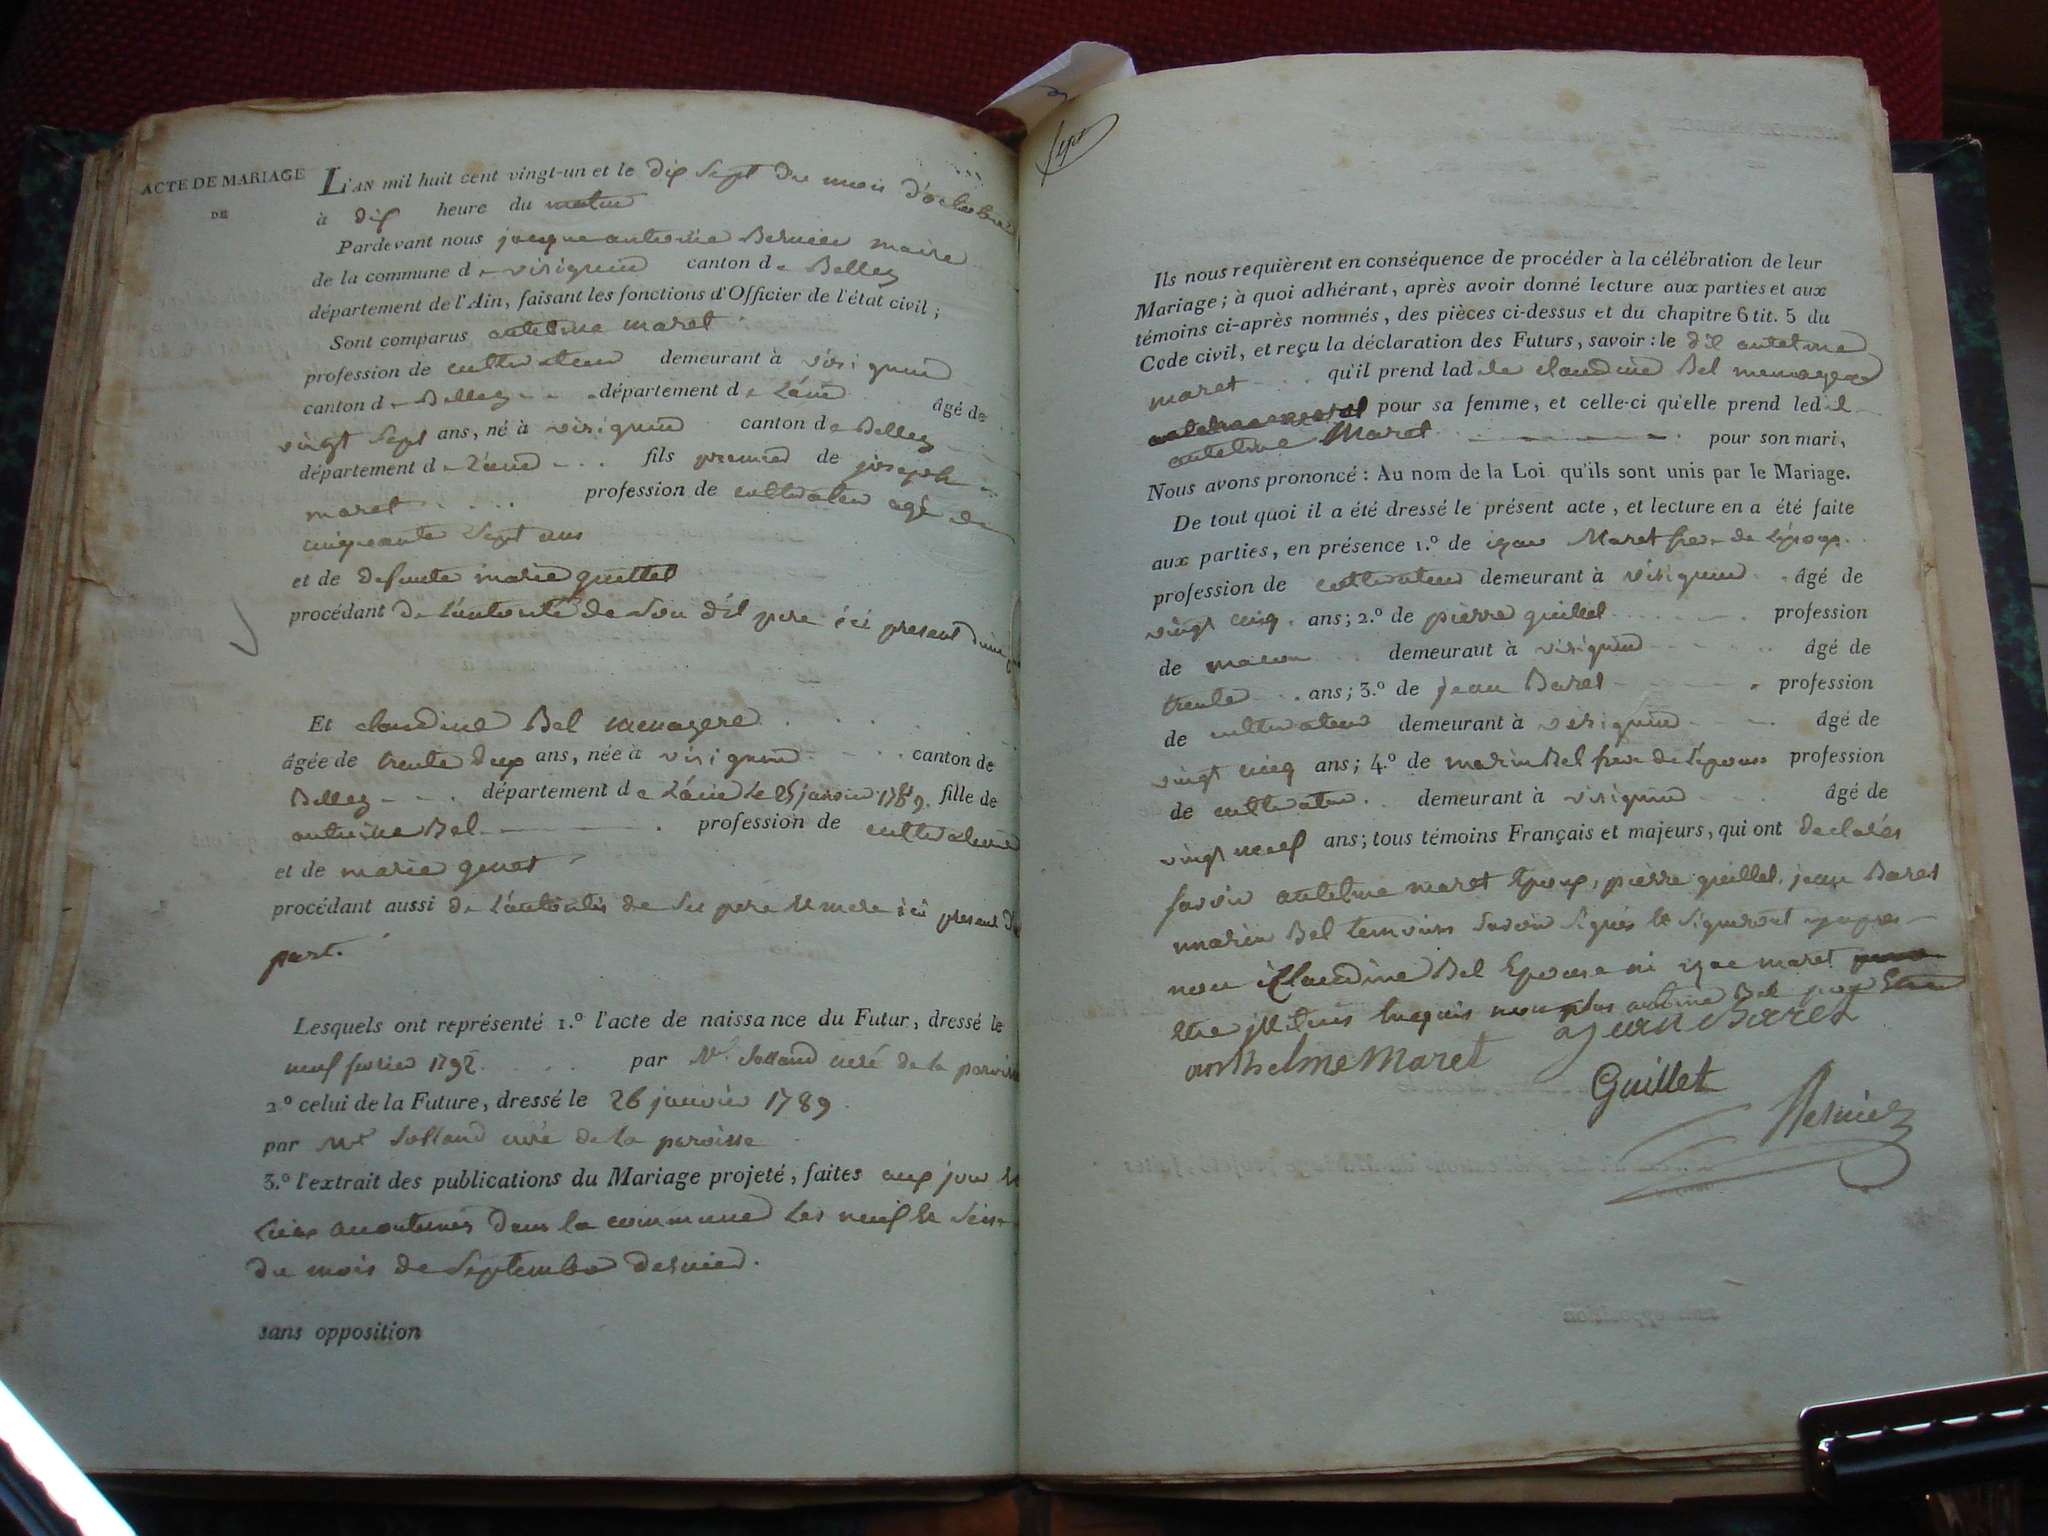 ACTE DE MARIAGE
DE
L'AN mil huit cent vingt-un et le dix sept du mois d'octobre
à dix heure du matin
Pardevant nous jacque antoine Bernier maire
de la commune de virignin canton de Belley
département de l'Ain, faisant les fonctions d'Officier de l'état civil ;
Sont comparus antelme maret
profession de cultivateur demeurant à virignin
canton de Belley département de L'ain âgé de
vingt sept ans, né à virignin canton de Belley
département de L'ain fils premier de joseph
maret profession de cultivateur agé de
cinquante sept ans
et de defunte marie guillet
procédant de L'autorité de Son dit pere ici present d'une
Et claudine Bel menagere
âgée de trente deux ans, née à virignin canton de
Belley département de L'ain le 25 janvier 1789. fille de
antoine Bel profession de cultivateur
et de marie genet
procédant aussi de L'autorités de ses pere et mere ici present
part.
Lesquels ont représenté 1.º l'acte de naissance du Futur, dressé le
neuf fevrier 1792 par Mr. Solland curé de la paroisse
2.º celui de la Future, dressé le 26 janvier 1789.
par Mr Solland curé de la paroisse
3.º l'extrait des publications du Mariage projeté, faites aux jour et
Lieux accoutumés dans la commune Les neuf et Seize
du mois de Septembre dernier.
sans opposition
Ils nous requièrent en conséquence de procéder à la célébration de leur
Mariage ; à quoi adhérant, après avoir donné lecture aux parties et aux
témoins ci-après nommés, des pièces ci-dessus et du chapitre 6 tit. 5 du
Code civil, et reçu la déclaration des Futurs, savoir : le dit antelme
maret qu'il prend lad ite claudine Bel menagere
pour sa femme, et celle-ci qu'elle prend led it
antelme Maret pour son mari,
Nous avons prononcé : Au nom de la Loi qu'ils sont unis par le Mariage.
De tout quoi il a été dressé le présent acte, et lecture en a été faite
aux parties, en présence 1.º de Maret frere de L'époux
profession de cultivateur demeurant à virignin âgé de
vingt cinq ans ; 2.º de pierre guillet profession
de macon demeuraut à virignin âgé de
trente ans ; 3.º de jean Baret profession
de cultivateur demeurant à virignin âgé de
vingt cinq ans ; 4.º de marin Bel frere de L'épouse profession
de cultivateur demeurant à virignin âgé de
vingt neuf ans ; tous témoins Français et majeurs, qui ont declarés
savoir antelme maret Epoux, pierre guillet, jean Baret
marin Bel temoins savoir signés et signeront
non Claudine Bel Epouse ni maret
non plus antoine Bel
anthelme Maret jean Baret
Guillet
Bernier